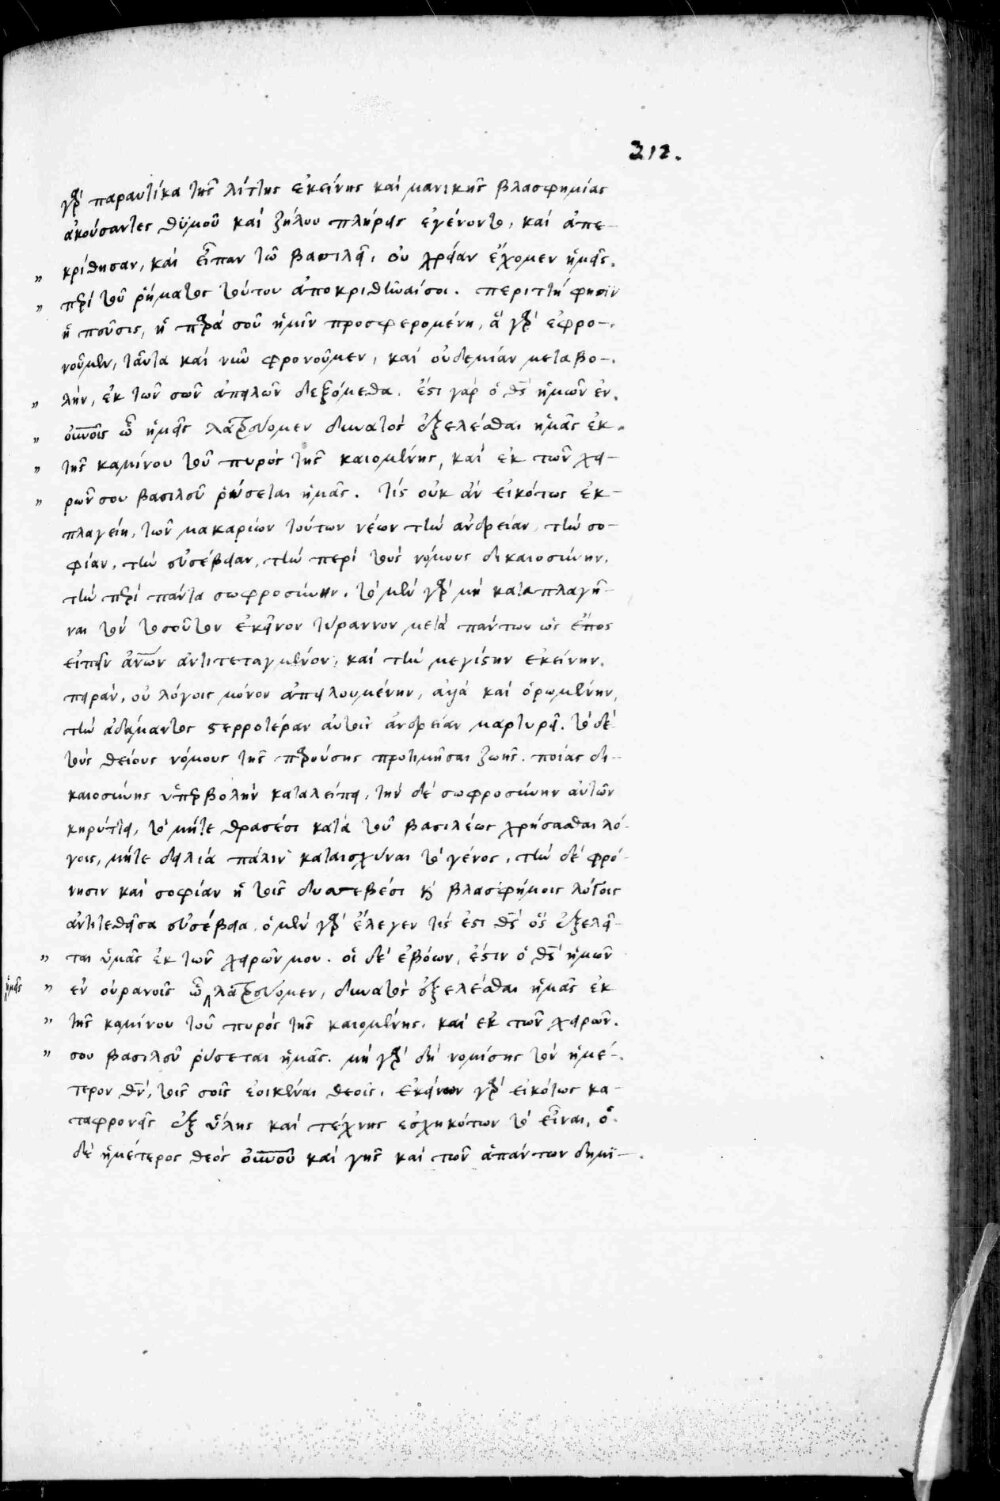 212.
γὰρ παραυτίκα τῆς λίττης ἐκείνης καὶ μανικῆς βλασφημίας
ἀκούσαντες θυμοῦ καὶ ζήλου πλήρεις ἐγένοντο, καὶ ἀπε-
" κρίθησαν, καὶ εἶπαν τῶ βασιλεῖ, οὐ χρείαν ἔχομεν ἡμεῖς.
" περὶ τοῦ ῥήματος τούτου ἀποκριθῆναί σοι. περιττή φησιν
ἡ πεῦσις, ἡ παρὰ σοῦ ἡμῖν προσφερομένη, ἃ γὰρ ἐφρο-
νοῦμεν, ταῦτα καὶ νῦν φρονοῦμεν, καὶ οὐδεμίαν μεταβο-
" λὴν, ἐκ τῶν σῶν ἀπειλῶν δεξόμεθα. ἔστι γὰρ ὁ θς ἡμῶν ἐν
" οὐνοῖς ὧ ἡμεῖς λατρεύομεν δυνατὸς ἐξελέσθαι ἡμᾶς ἐκ
" τῆς καμίνου τοῦ πυρὸς τῆς καιομένης, καὶ ἐκ τῶν χει-
" ρῶν σου βασιλεῦ ῥύσεται ἡμᾶς. τίς οὐκ ἂν εἰκότως ἐκ-
πλαγείη, τῶν μακαρίων τούτων νέων τὴν ἀνδρείαν, τὴν σο-
φίαν, τὴν εὐσέβειαν, τὴν περὶ τοὺς νόμους δικαιοσύνην,
τὴν περὶ πάντα σωφροσύνην. τὸ μὲν γὰρ μὴ καταπλαγῆ-
ναι τὸν τοσοῦτον ἐκεῖνον τύραννον μετὰ πάντων ὡς ἔπος
εἰπεῖν ἀνων ἀντιτεταγμένον, καὶ τὴν μεγίστην ἐκείνην
πυρὰν, οὐ λόγοις μόνον ἀπειλουμένην, ἀλλὰ καὶ ὁρωμένην,
τὴν ἀδάμαντος στερροτέραν αὐτοῖς ἀνδρείαν μαρτυρεῖ. τὸ δὲ
τοὺς θείους νόμους τῆς παρούσης προτιμῆσαι ζωῆς. ποίας δι-
καιοσύνης ὑπερβολὴν καταλείπει, τὴν δὲ σωφροσύνην αὐτῶν
κηρύττει, τὸ μήτε θρασέσι κατὰ τοῦ βασιλέως χρήσασθαι λό-
γοις, μήτε δειλιᾶ πάλιν καταισχῦναι τὸ γένος, τὴν δὲ φρό-
νησιν καὶ σοφίαν ἡ τοῖς δυσσεβέσι καὶ βλασφήμοις λόγοις
ἀντιτεθεῖσα εὐσέβεια. ὁ μὲν γὰρ ἔλεγεν τίς ἐστι θς ὃς ἐξελεῖ-
" ται ὑμᾶς ἐκ τῶν χειρῶν μου. οἱ δὲ ἐβόων, ἔστιν ὁ θς ἡμῶν
ἡμεῖς " ἐν οὐρανοῖς ὧ λατρεύομεν, δυνατὸς ἐξελέσθαι ἡμᾶς ἐκ
" τῆς καμίνου τοῦ πυρὸς τῆς καιομένης, καὶ ἐκ τῶν χειρῶν
" σου βασιλεῦ ῥύσεται ἡμᾶς. μὴ γὰρ δὴ νομίσης τὸν ἡμέ-
τερον θν, τοῖς σοῖς ἐοικέναι θεοῖς, ἐκείνων γὰρ εἰκότως κα-
ταφρονεῖς ἐξ ὕλης καὶ τέχνης ἐσχηκότων τὸ εἶναι, ὁ
δὲ ἡμέτερος θεὸς οὐνοῦ καὶ γῆς καὶ τῶν ἁπάντων δημι-